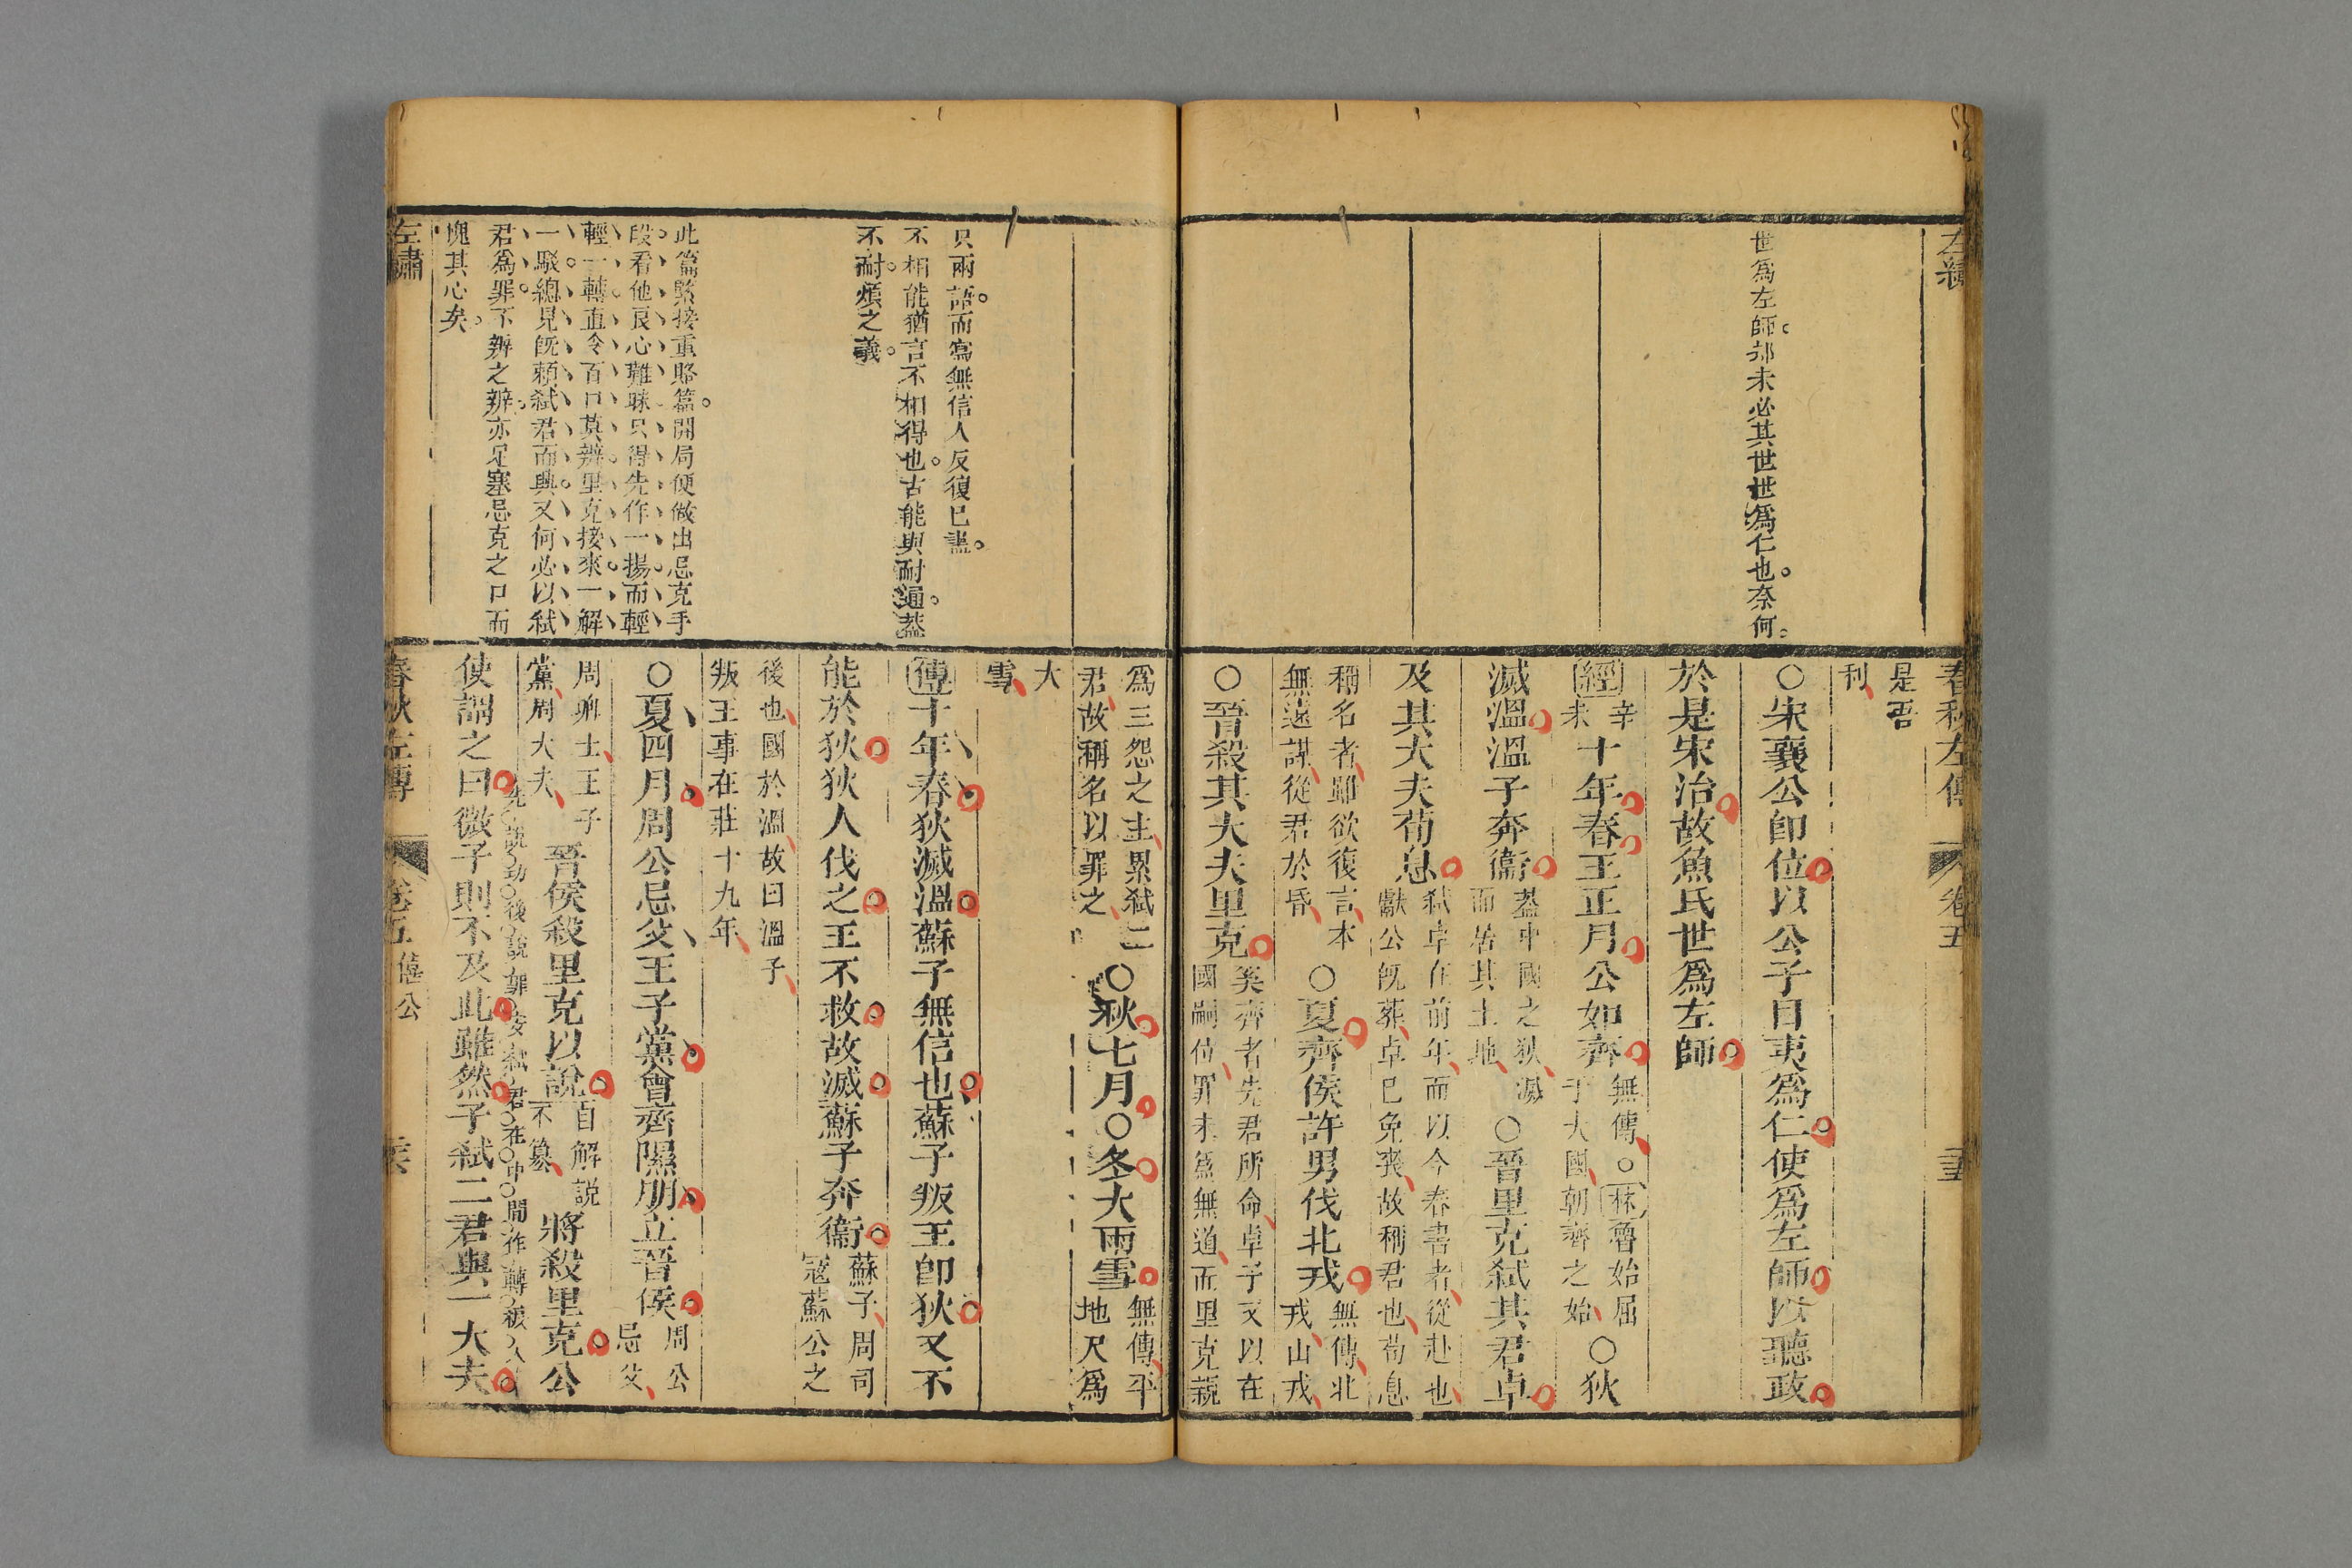 左繡
世爲左師郤未必其世世爲仁也奈何
春秋左傳 卷五
是吾
利
○宋襄公即位以公子目夷爲仁使爲左師以聽政
於是宋治故魚氏世爲左師
經 辛
未
十年春王正月公如齊
無傳○林魯始屈
于大國朝齊之始
○狄
滅溫溫子奔衞
蓋中國之狄滅
而居其土地
○晉里克弑其君卓
及其大夫荀息
弑卓在前年而以今春書者從赴也
獻公旣葬卓已免喪故稱君也荀息
稱名者雖欲復言本
無遠謀從君於昏
○夏齊侯許男伐北戎
無傳北
戎山戎
○晉殺其大夫里克
奚齊者先君所命卓子又以在
國嗣位罪未爲無道而里克親
爲三怨之主累弑二
君故稱名以罪之
○秋七月○冬大雨雪
無傳平
地尺爲
大
雪
只兩語而寫無信人反復已盡
不相能猶言不相得也古能與耐通蓋
不耐煩之義
傳十年春狄滅溫蘇子無信也蘇子叛王即狄又不
能於狄狄人伐之王不救故滅蘇子奔衞
蘇子周司
寇蘇公之
後也國於溫故曰溫子
叛王事在莊十九年
此篇緊接重賂篇開局便做出忌克手
段看他良心難昧只得先作一揚而輕
輕一轉直令百口莫辨里克接來一解
一駁總見旣頼弑君而興又何必以弑
君爲罪不辨之辨亦足塞忌克之口而
愧其心矣
○夏四月周公忌父王子黨會齊隰朋立晉侯
周公
忌父
周卿士王子
黨周大夫
晉侯殺里克以說
自解說
不篡
將殺里克公
使謂之曰微子則不及此雖然子弑二君與一大夫
左繡
春秋左傳 卷五 僖公